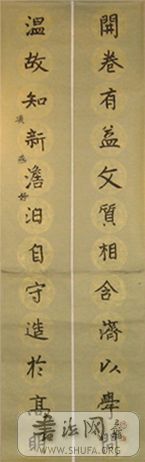 開卷有益文質相含濟以學問
溫故知新澹泊自守造於高明
書法网
WWW.SHUFA.ORG